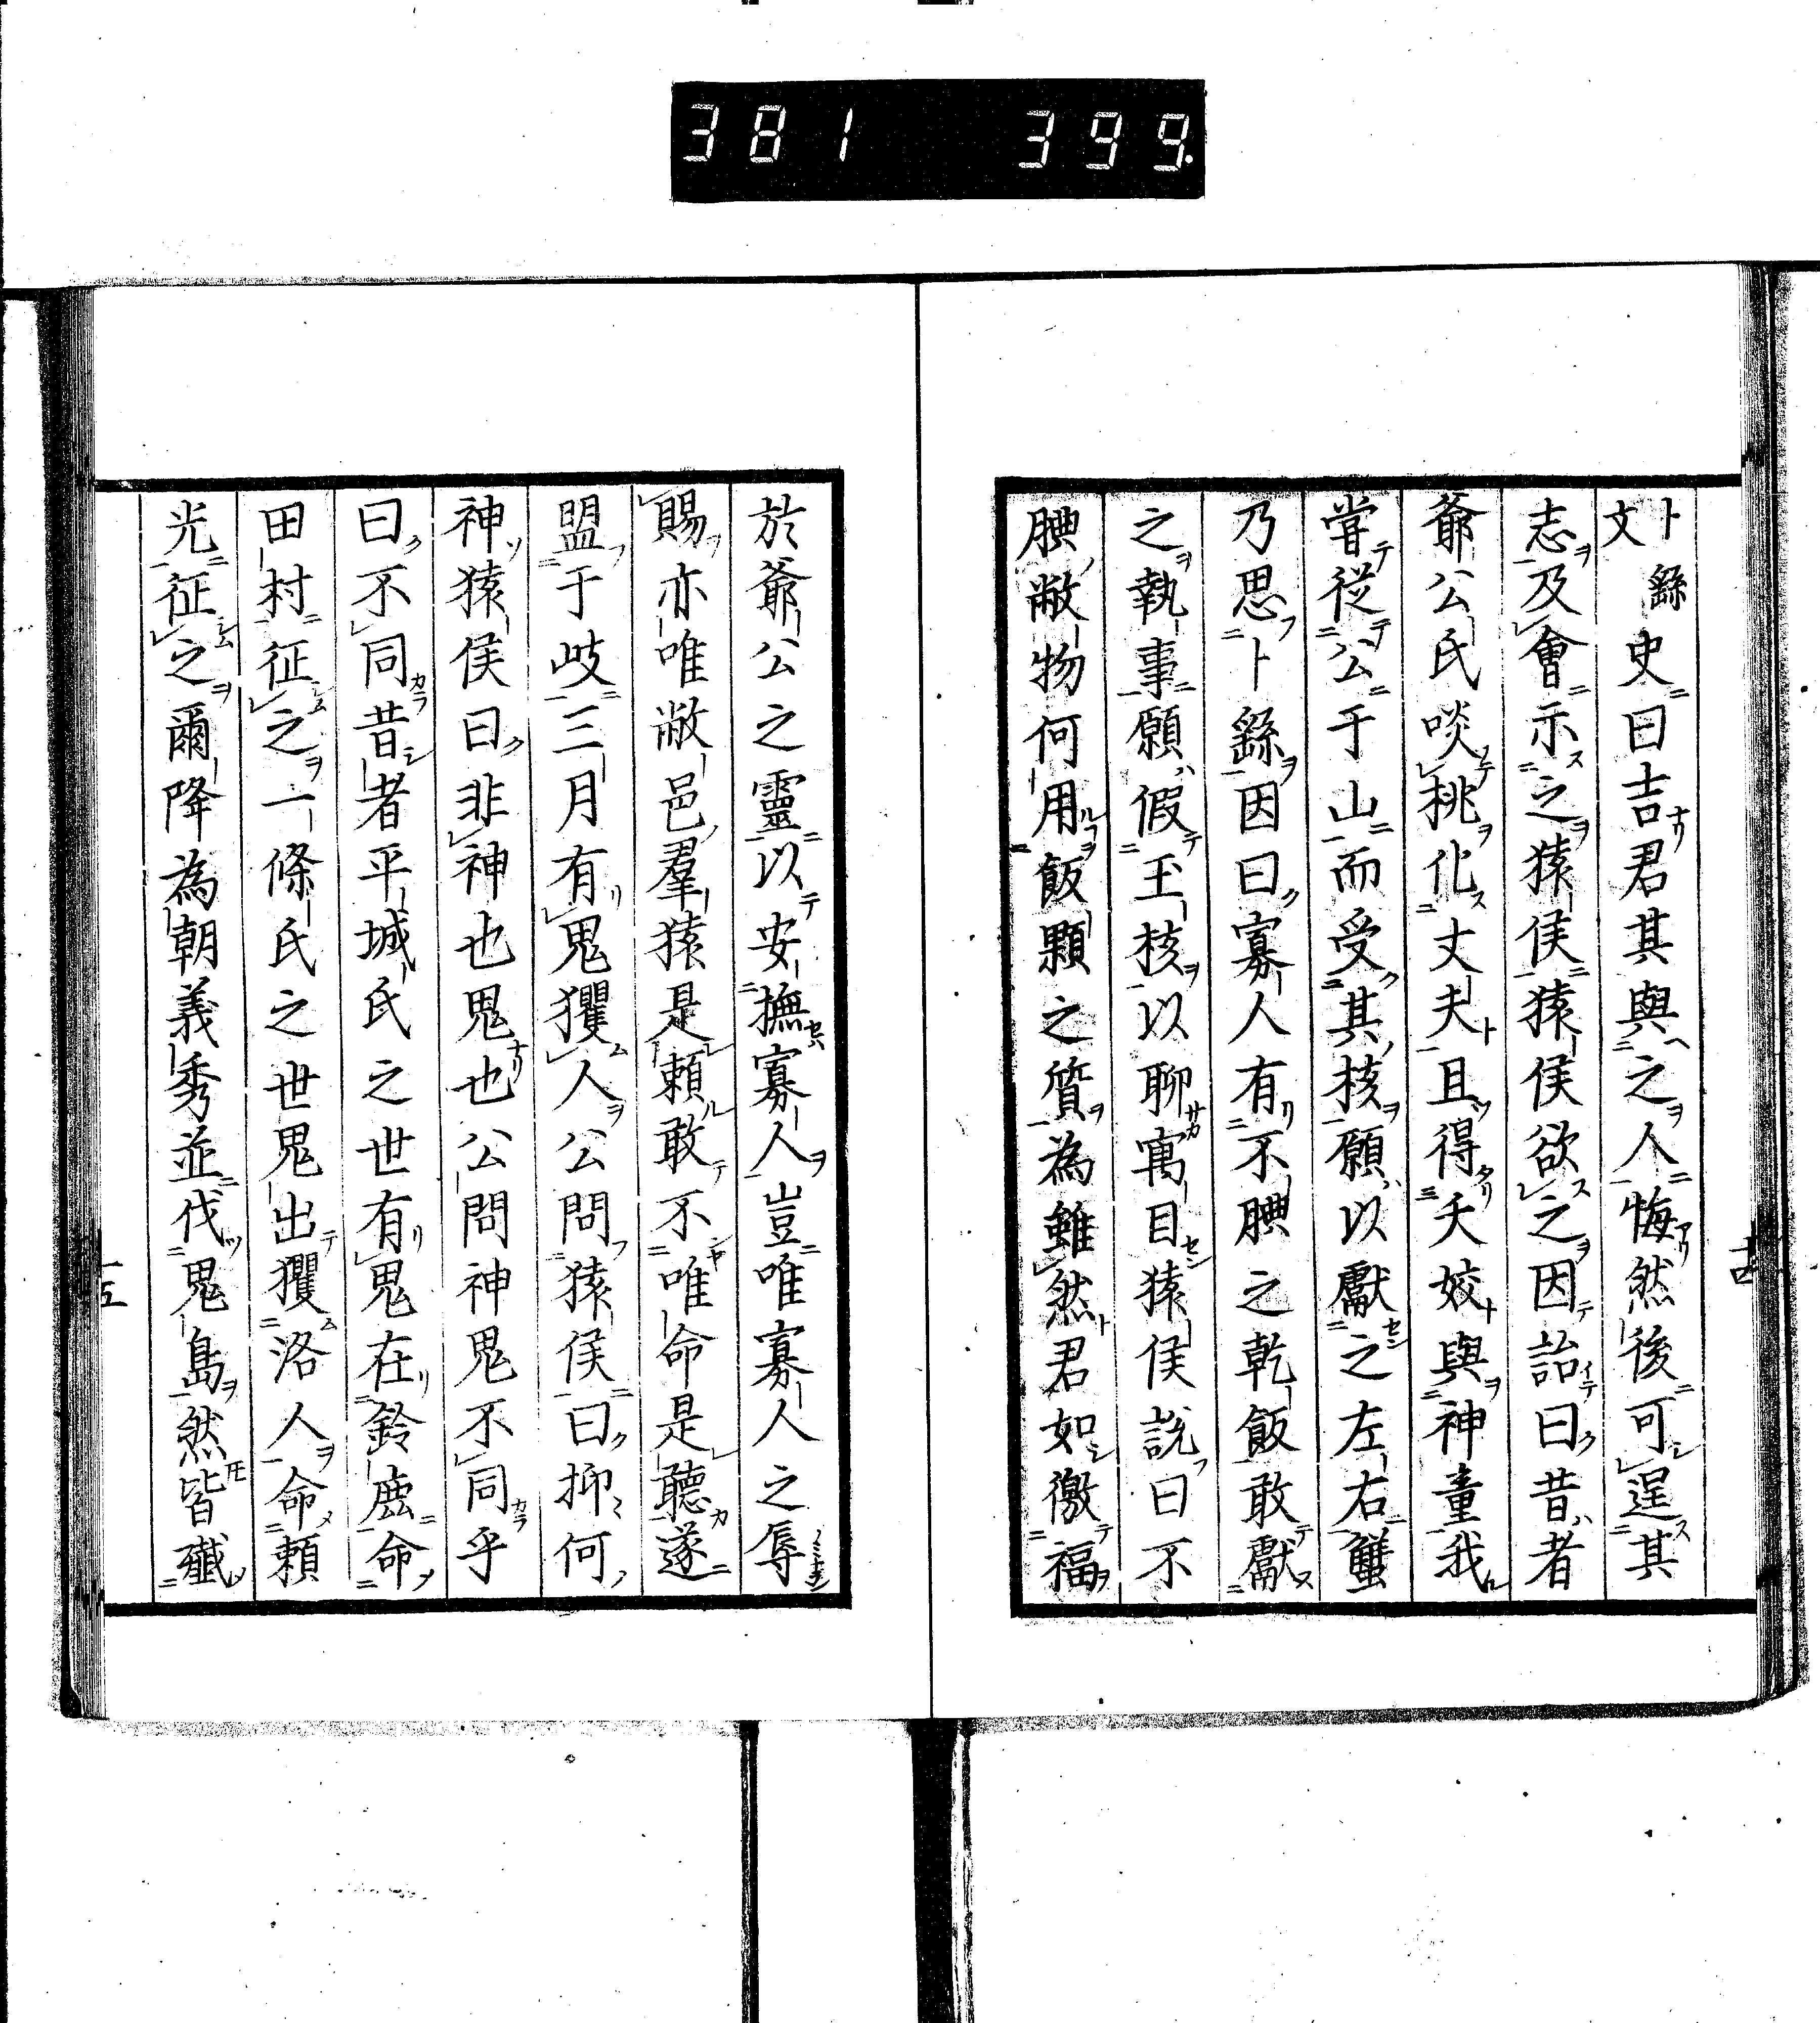 381 399.
卜文 繇史曰吉君其與之人悔然後可逞其
志及會示之猿侯猿侯欲之因詒曰昔者
爺公氏啖桃化丈夫且得夭姣與神童我
嘗從公于山而受其核願以獻之左右蟹
乃思卜繇因曰寡人有不腆之乾飯敢獻
之執事願假玉核以聊寓目猿侯説曰不
腆敝物何用飯顆之質為雖然君如徼福
十四
於爺公之靈以安撫寡人豈唯寡人之辱
賜亦唯敝邑羣猿是賴敢不唯命是聽遂
盟于岐三月有鬼玃人公問猿侯曰抑何
神猿侯曰非神也鬼也公問神鬼不同乎
曰不同昔者平城氏之世有鬼在鈴鹿命
田村征之一條氏之世鬼出玃洛人命賴
光征之爾降為朝義秀並伐鬼島然皆殲
十五